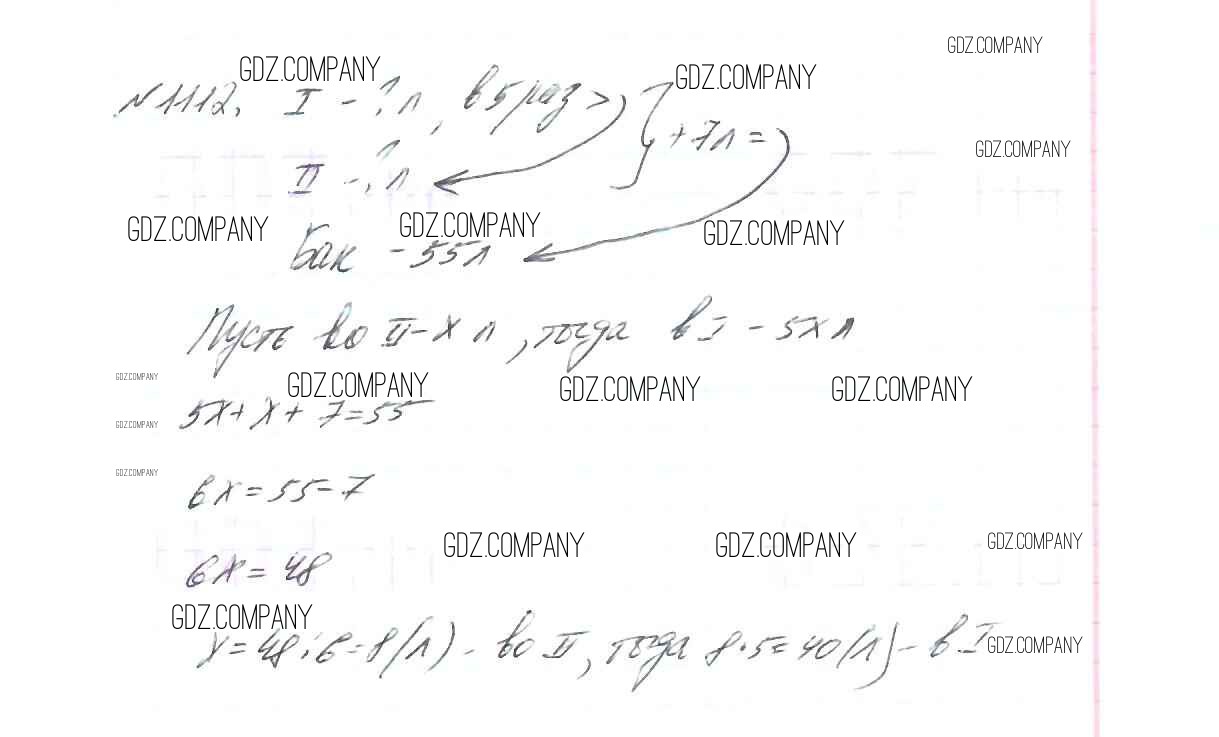 GDZ.COMPANY
GDZ.COMPANY GDZ.COMPANY
№1112. I - ? л, в 5 раз > } + 7л =
GDZ.COMPANY
II - ? л
GDZ.COMPANY GDZ.COMPANY GDZ.COMPANY
Бак - 55л
Пусть во II - x л, тогда в I - 5x л
GDZ.COMPANY GDZ.COMPANY GDZ.COMPANY GDZ.COMPANY
5x + x + 7 = 55
GDZ.COMPANY
GDZ.COMPANY
6x = 55 - 7
GDZ.COMPANY GDZ.COMPANY GDZ.COMPANY
6x = 48
GDZ.COMPANY
x = 48 : 6 = 8 (л) - во II, тогда 8 · 5 = 40 (л) - в I
GDZ.COMPANY